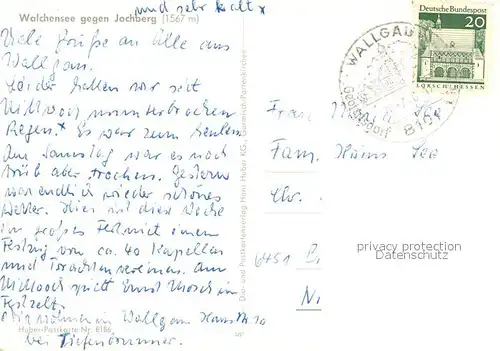 und sehr kalt x
Walchensee gegen Jochberg (1567 m)
Viele Grüße an Alle aus
Wallgau.
Leider hatten wir seit
Mittwoch ununterbrochen
Regen.* Es war zum heulen
Am Samstag war es noch
trüb aber trocken. Gestern
war endlich wieder schönes
Wetter. Hier ist diese Woche
ein großes Fest mit einem
Festzug von ca. 40 Kapellen
und Trachtenvereinen. Am
Mittwoch spielt Ernst Mosch im
Festzelt.
Wir wohnen in Wallgau Haus Nr 10
Huber-Postkarte Nr. 8186
bei Tiefenbrunner.
Die- und Postkartenverlag Hans Huber KG., Garmisch-Partenkirchen
WALLGAU
Gebirgsdorf
8101
Deutsche Bundespost
20
LORSCH/HESSEN
Fam. Hans
6451
privacy protection
Datenschutz